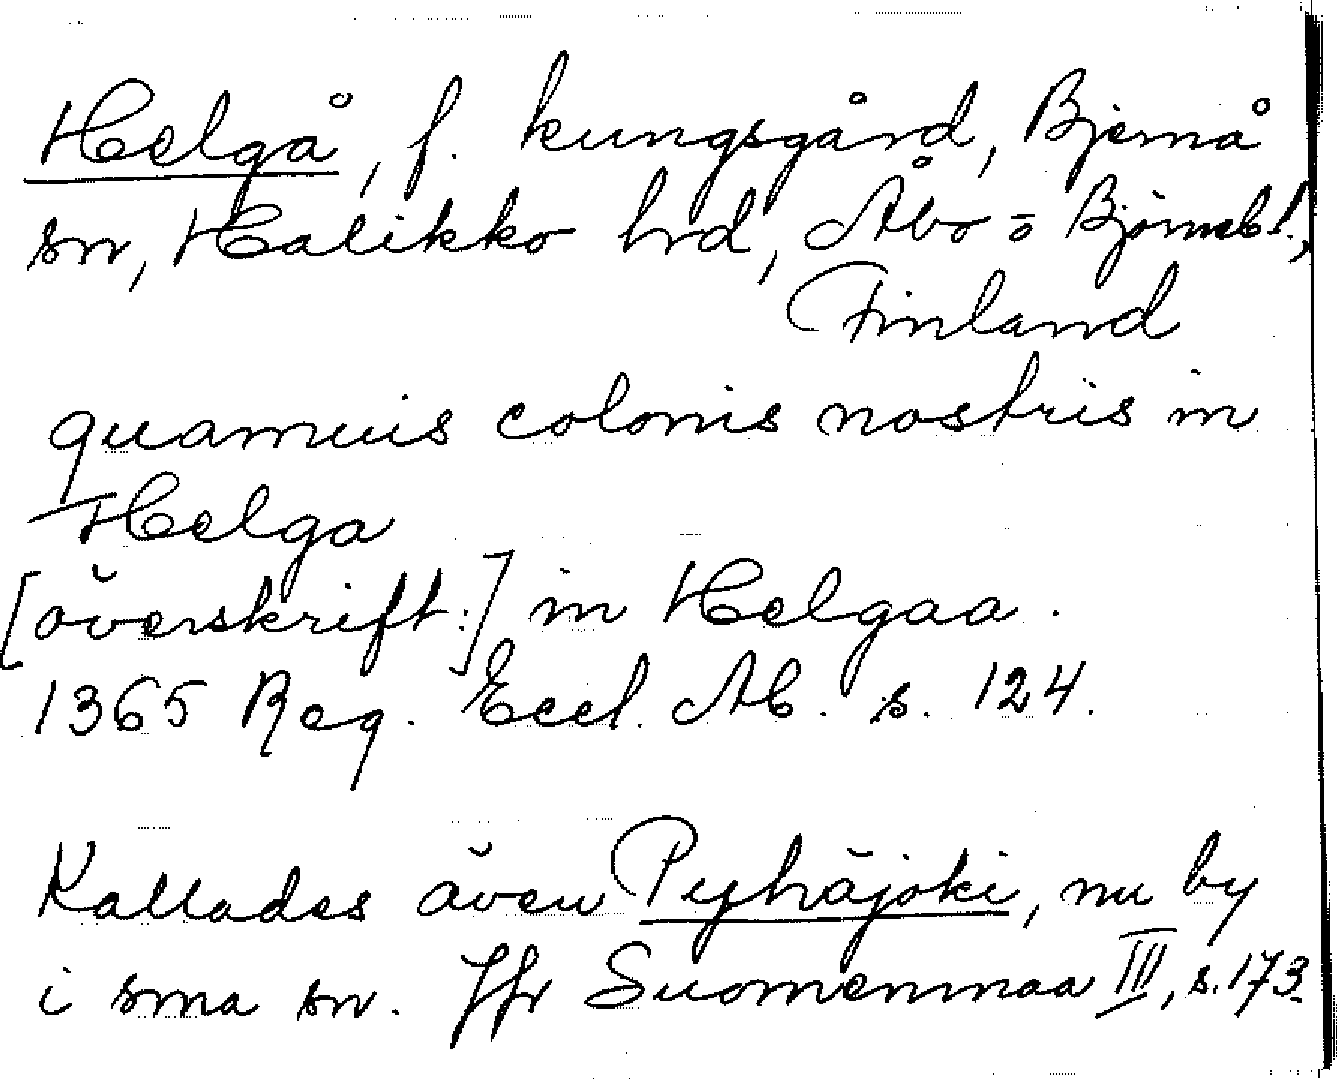 Helgå, f. kungsgård, Bjernå
sn, Halikko hrd, Åbo = Björnebl.,
Finland
quamuis colonis nostris in
Helga
[överskrift:] in Helgaa.
1365 Reg. Eccl. Ab. s. 124.
Kallades även Pyhäjoki, nu by
i sma sn. Jfr Suomenmaa III, s. 173.